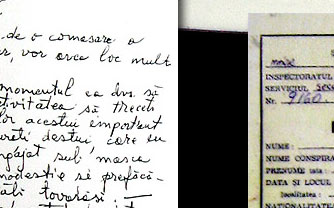 de o comasare a
er, vor avea loc mult
momentul ca dvs. să
tivitatea să treceti
lor acestui important
destui, care su
ngajat sub masca
modestie si prefăcă-
tovarăsi.
INSPECTORATUL
SERVICIUL
Nr. 9160
NUME :
NUME CONSPIRA
PRENUME tata :
DATA ŞI LOCUL
localitatea :
NATIONALITATEA